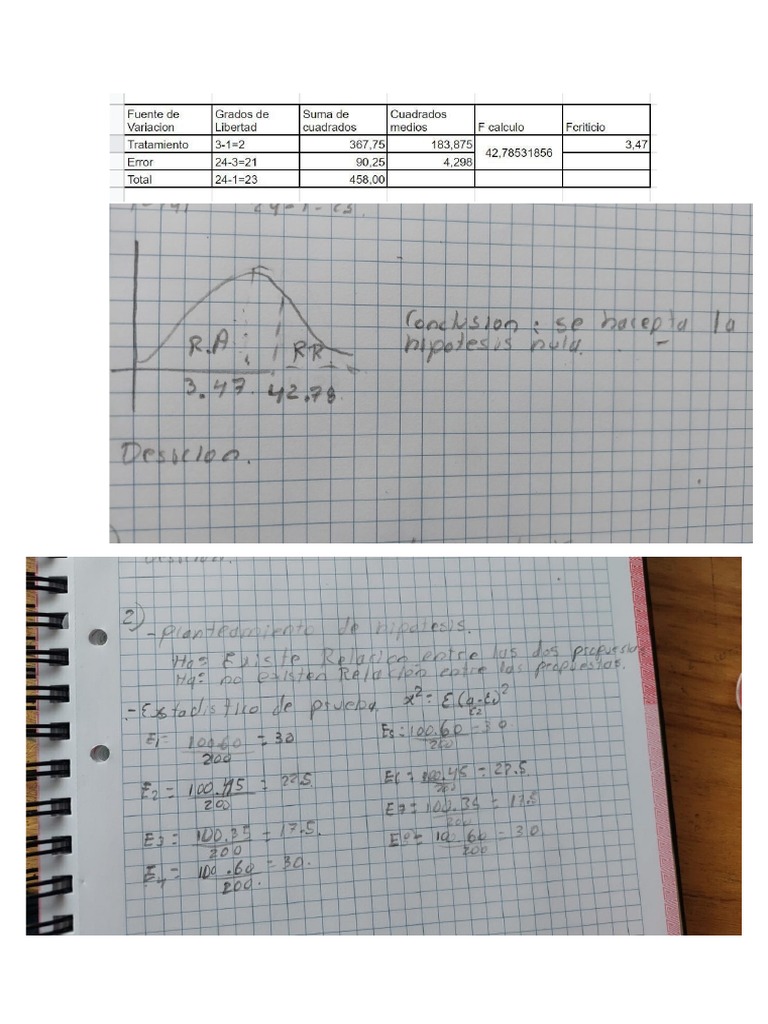 Fuente de Variacion Grados de Libertad Suma de cuadrados Cuadrados medios F calculo Fcriticio
Tratamiento 3-1=2 367,75 183,875 42,78531856 3,47
Error 24-3=21 90,25 4,298
Total 24-1=23 458,00
24-1-23.
R.A RR
3.47 42.78
Conclusion: se hacepta la
hipotesis nula.
Desicion.
2)
- planteamiento de hipotesis.
Ho= Existe Relacion entre las dos propuestas
Ha= no existen Relacion entre las propuestas.
- Estadistico de prueba x²= Σ(
E1= 100.60/200 = 30
E2 = 100.45/200 = 22.5
E3 = 100.35/200 = 17.5.
E4 = 100.60/200. = 30.
E5 = 100.60/200 = 30
E6 = 100.45/200 = 22.5
E7 = 100.35/200 = 17.5
10.60/200 = 30